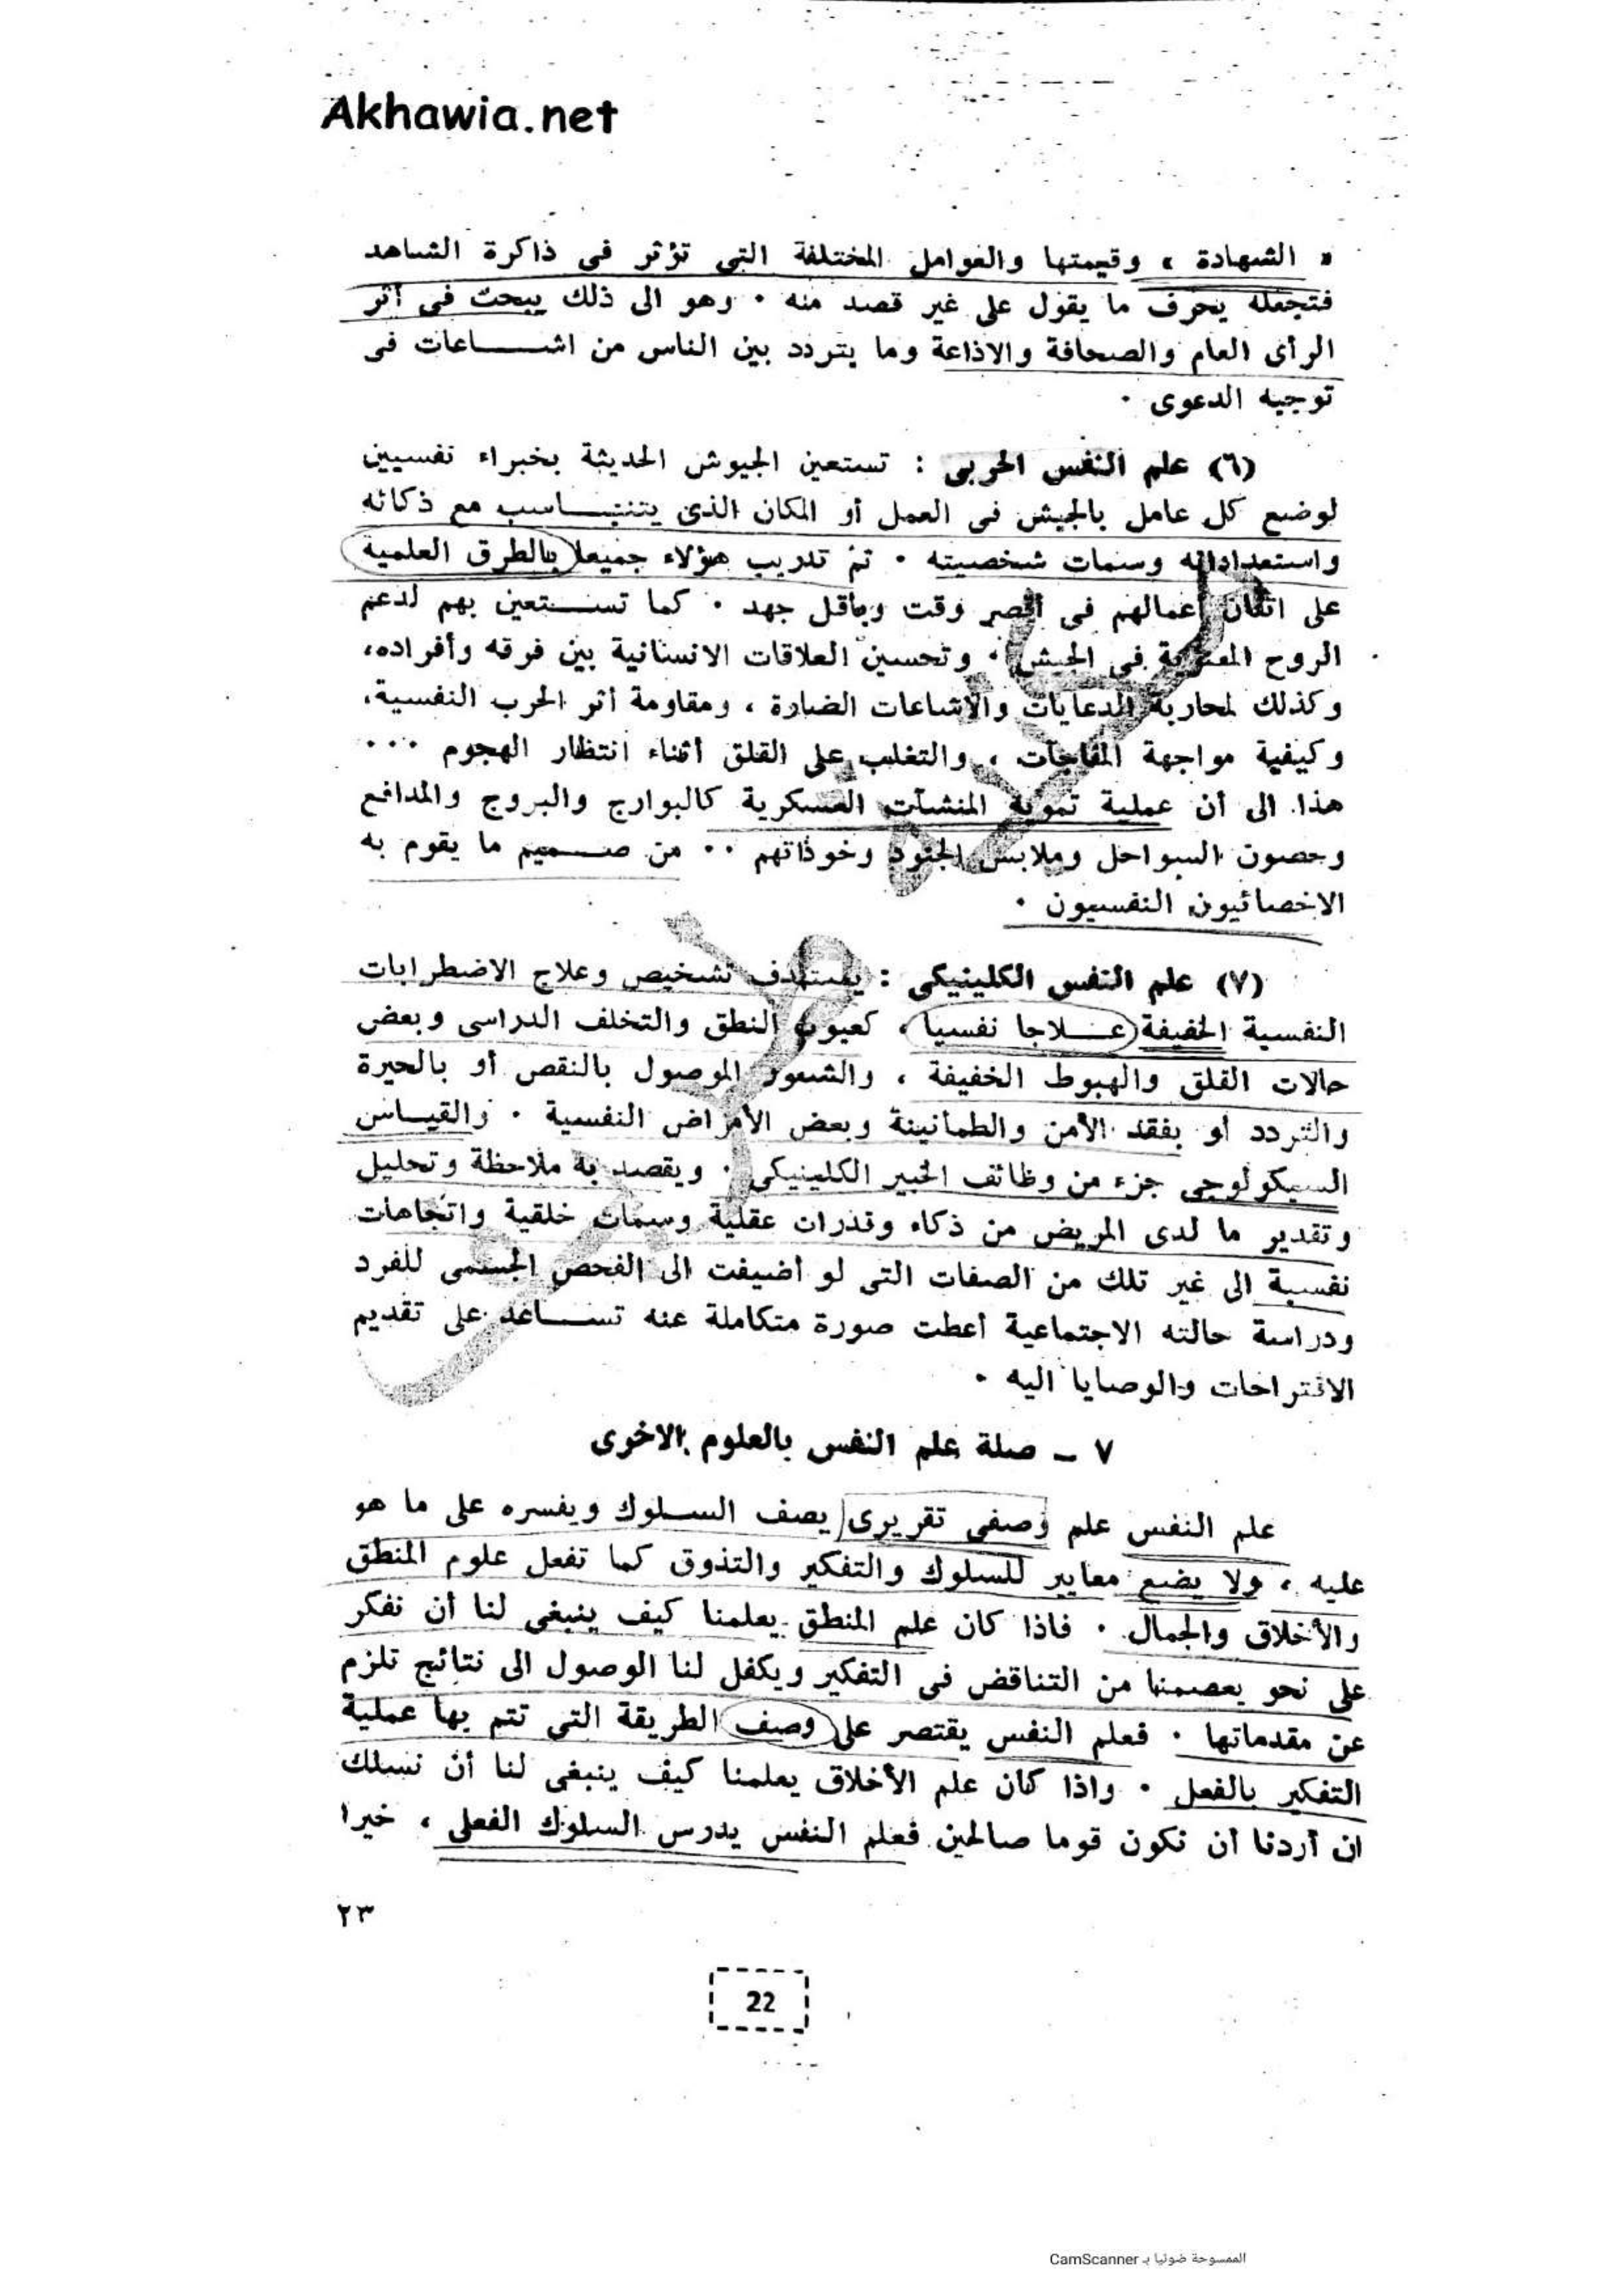 Akhawia.net
« الشهادة » وقيمتها والعوامل المختلفة التى تؤثر فى ذاكرة الشاهد
فتجعله يحرف ما يقول على غير قصد منه . وهو الى ذلك يبحث فى أثر
الرأى العام والصحافة والاذاعة وما يتردد بين الناس من اشـــاعات فى
توجيه الدعوى .
(٦) علم النفس الحربى : تستعين الجيوش الحديثة بخبراء نفسيين
لوضع كل عامل بالجيش فى العمل أو المكان الذى يتنـاسب مع ذكائه
واستعداداته وسمات شخصيته . ثم تدريب هؤلاء جميعا بالطرق العلمية
على اتقان أعمالهم فى أقصر وقت وبأقل جهد . كما تســتعين بهم لدعم
الروح المعنوية فى الجيش . وتحسين العلاقات الانسانية بين فرقه وأفراده،
وكذلك لمحاربة الدعايات والاشاعات الضارة ، ومقاومة أثر الحرب النفسية،
وكيفية مواجهة المفاجآت ، والتغلب على القلق أثناء انتظار الهجوم ...
هذا الى أن عملية تمويه المنشآت العسكرية كالبوارج والبروج والمدافع
وحصون السواحل وملابس الجنود وخوذاتهم .. من صــميم ما يقوم به
الاخصائيون النفسيون .
(٧) علم النفس الكلينيكى : يستهدف تشخيص وعلاج الاضطرابات
النفسية الخفيفة عــلاجا نفسيا ، كعيوب النطق والتخلف الدراسى وبعض
حالات القلق والهبوط الخفيفة ، والشعور الموصول بالنقص أو بالحيرة
والتردد أو بفقد الأمن والطمأنينة وبعض الأمراض النفسية . والقيــاس
السيكولوجى جزء من وظائف الخبير الكلينيكى . ويقصد به ملاحظة وتحليل
وتقدير ما لدى المريض من ذكاء وقدرات عقلية وسمات خلقية واتجاهات
نفسية الى غير تلك من الصفات التى لو أضيفت الى الفحص الجسمى للفرد
ودراسة حالته الاجتماعية أعطت صورة متكاملة عنه تســاعد على تقديم
الاقتراحات والوصايا اليه .
٧ ــ صلة علم النفس بالعلوم الاخرى
علم النفس علم وصفى تقريرى يصف السـلوك ويفسره على ما هو
عليه ، ولا يضع معايير للسلوك والتفكير والتذوق كما تفعل علوم المنطق
والأخلاق والجمال . فاذا كان علم المنطق يعلمنا كيف ينبغى لنا أن نفكر
على نحو يعصمنا من التناقض فى التفكير ويكفل لنا الوصول الى نتائج تلزم
عن مقدماتها . فعلم النفس يقتصر على وصف الطريقة التى تتم بها عملية
التفكير بالفعل . واذا كان علم الأخلاق يعلمنا كيف ينبغى لنا أن نسلك
ان أردنا أن نكون قوما صالحين فعلم النفس يدرس السلوك الفعلى ، خيرا
٢٣
22
الممسوحة ضوئيا بـ CamScanner